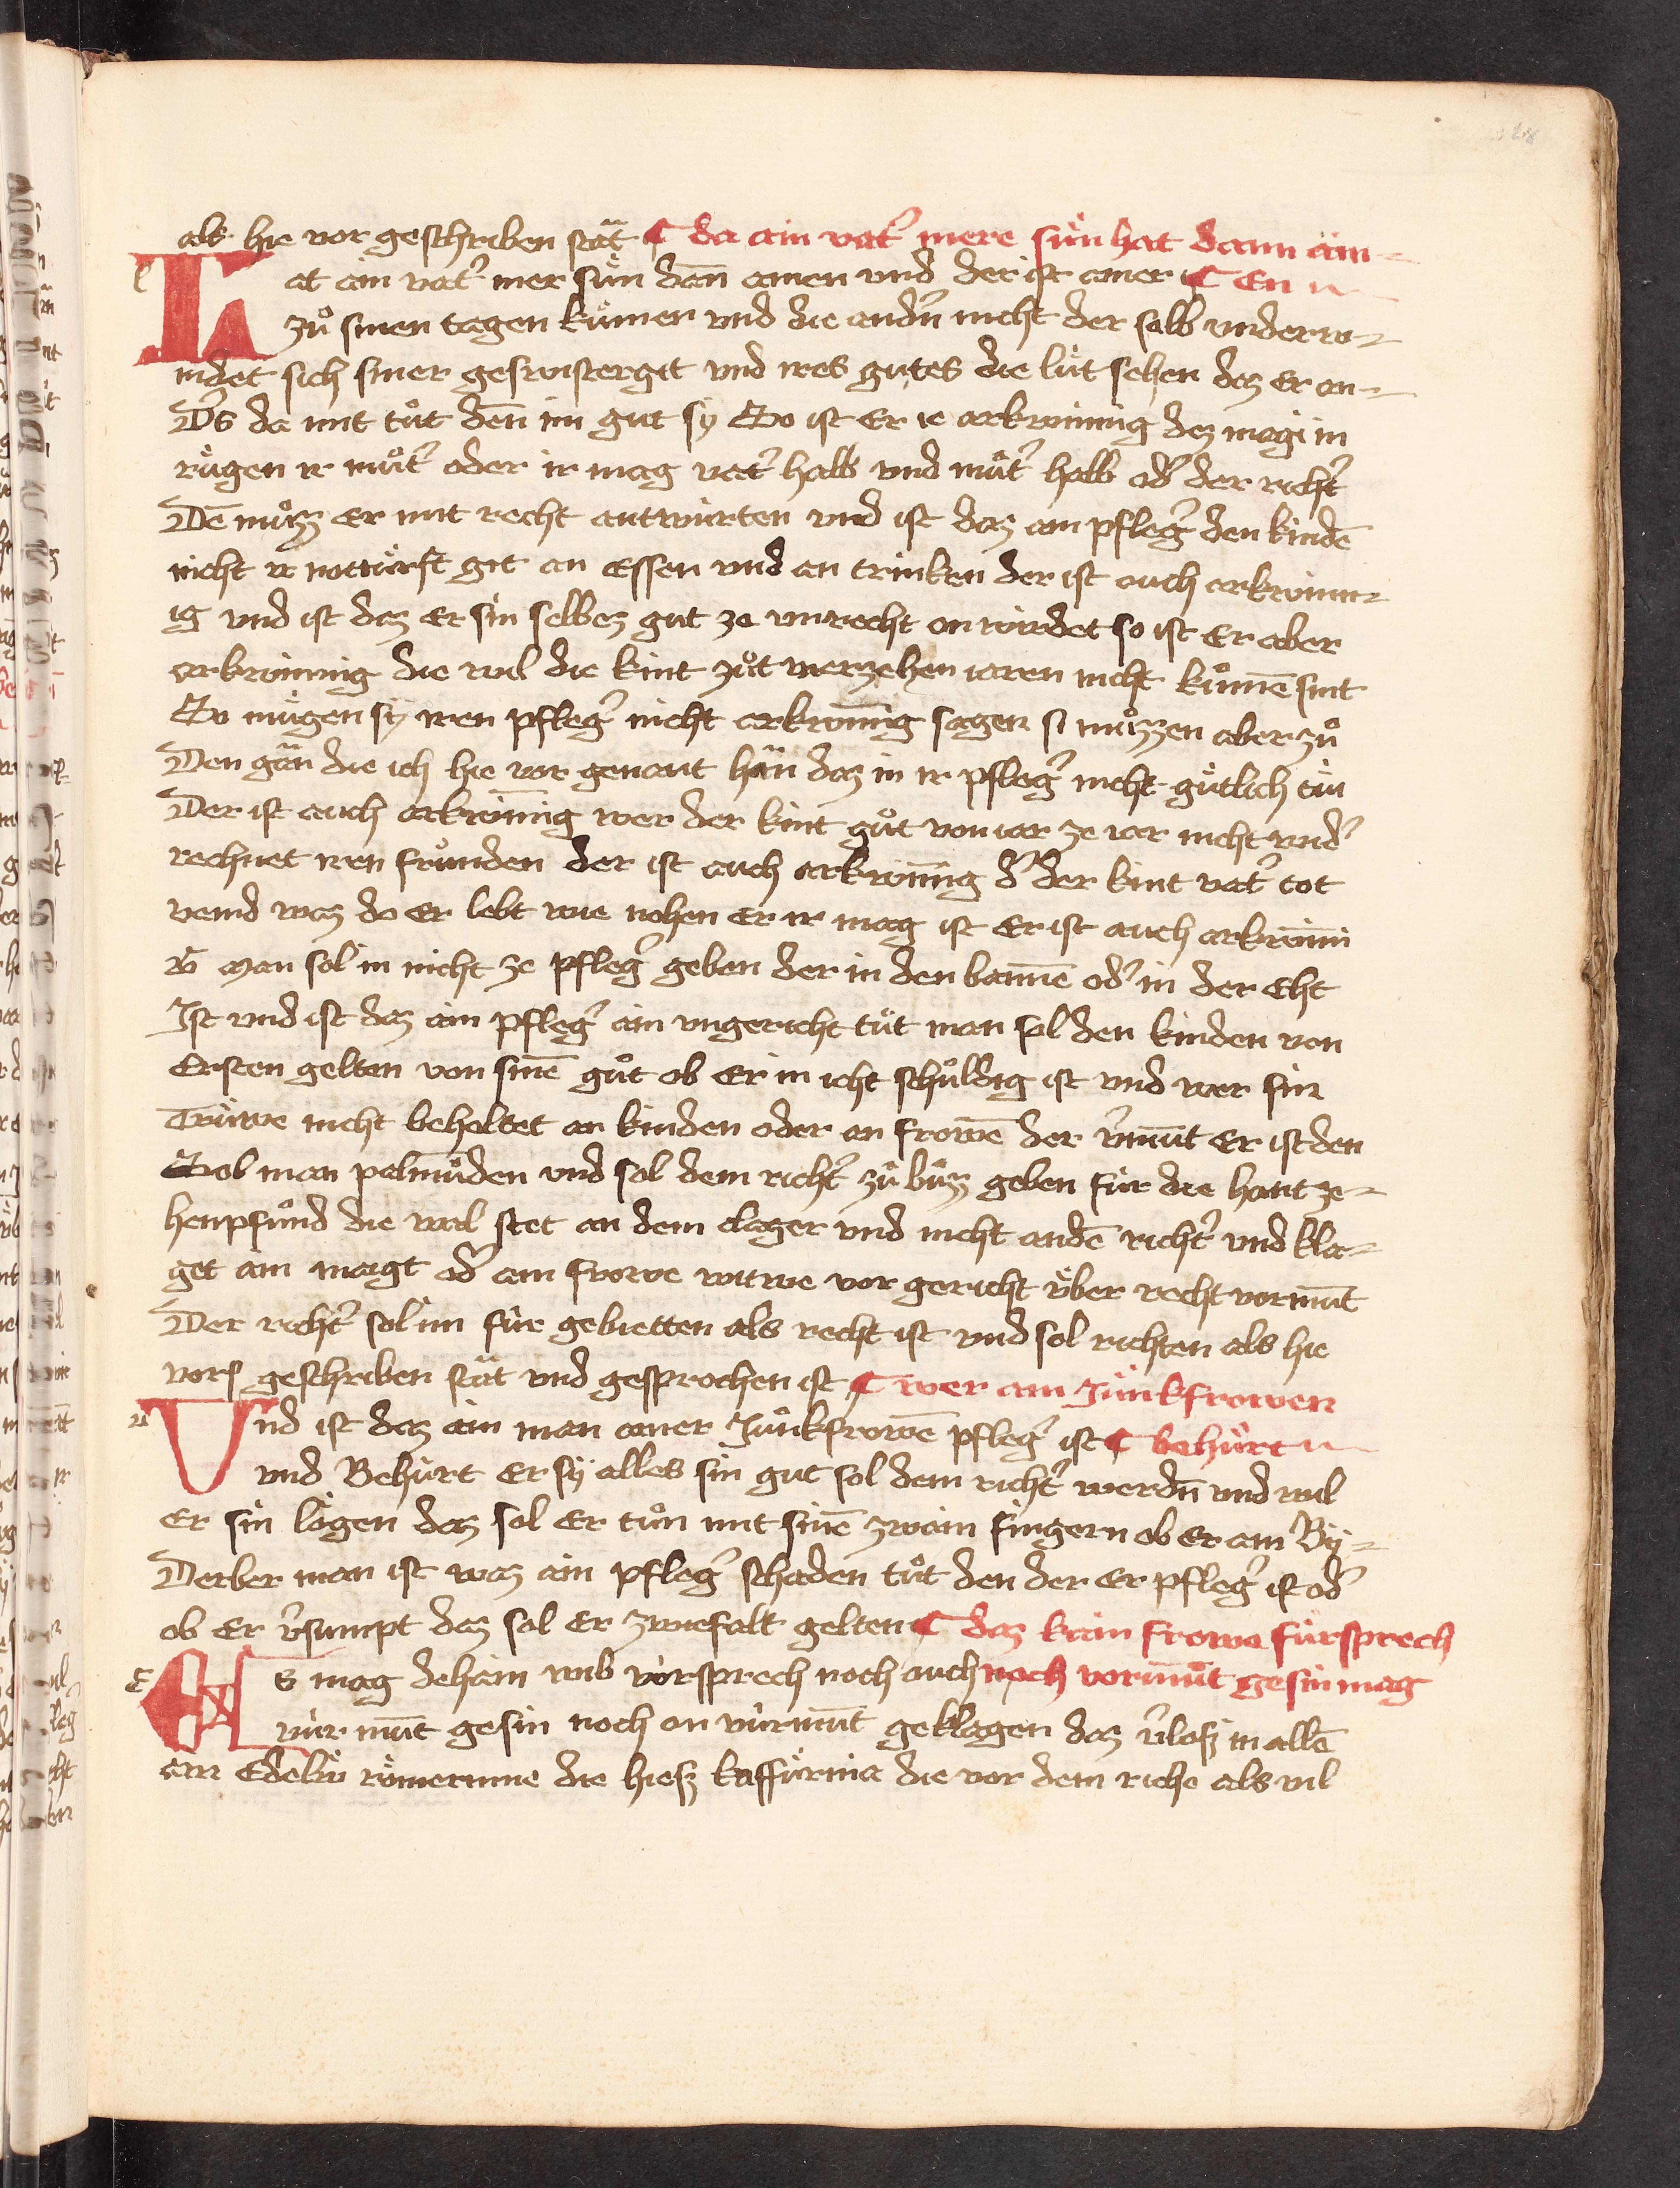 als hie vor geschriben stät ¶ da ain vatˀ mere sün hat dann ain-
at ain vatˀ mer sün dañ ainen vnd der ist ainer ¶ En
zuͦ sinen tagen kumen vnd die andˀn nicht der selb vnderw-
indet sich siner geswistergit vnd ires gutes die lüt sehen daz er an-
Dˀs da mit tuͦt deñ im gut sy So ist Er ie arkwänig dez magi in
rügen ir muͦtˀ oder ir mag vatˀ halb vnd muͦtˀ halb odˀ der richtˀ
De͞ muͦzz er mit recht antwürten vnd ist daz ain pflegˀ den kinde͞
nicht ir notturft git an Essen vnd an trinken der ist auch arkwän-
ig vnd ist daz Er sin selbez gut ze vnrecht an wirdet so ist Er aber
arkwänig die wil die kint zuͦt vierzehen iaren nicht kume͞ sint
So mügen sy iren pflegˀ nicht arkwänig sagen si muͦzzen aber zuͦ
Den gän die ich hie vor genant hän daz in ir pflegˀ nicht guͤtlich tuͤ
Der ist auch arkwänig wer der kint guͦt von iar ze iar nicht vndˀ
rechnet iren fründen der ist auch arkwänig dˀ der kint vatˀ tot
veind waz do er lebt wie nohen er ir mag ist Er ist auch arkwäni
g man sol in nicht ze pflegˀ geben der in den banne͞ odˀ in der Eht
Ist vnd ist daz ain pflegˀ ain vngericht tuͦt man sol den kinden von
Ersten gelten von sine͞ guͦt ob Er in icht schuldig ist vnd wer sin
Trüwe nicht behaltet an kinden oder an frowe͞ der vˀmunt Er ist den
Sol man palmunden vnd sol dem richtˀ zuͦ buͦzz geben für die hant ze-
henpfund die wal stet an dem clager vnd nicht an de͞ richtˀ vnd kla-
get ain magt odˀ ain frowe witwe vor gericht über recht vormūt
Der richtˀ sol im für gebietten als recht ist vnd sol richten als hie
vor geschriben stät vnd gesprochen ist ¶ wer ain Junkfrowen
Vnd ist daz ain man ainer Junkfrowe͞ pflegˀ ist ¶ behürt
vnd Behürt Er sy alles sin gut sol dem richtˀ werdn͞ vnd wil
Er sin lögen daz sol Er tuͦn mit sine͞ zwain fingern ob Er ain Bi-
Derber man ist waz ain pflegˀ schaden tuͦt den der Er pflegˀ ist odˀ
ob Er vˀsumpt daz sol Er zwiefalt gelten ¶ daz kain frowe fürsprech
Es mag dehain wib vorsprech noch auch noch vormūt gesin mag
vür mūt gesin noch on vürmūt geklagen daz vˀlosz in alle͞
ain Edelü römerinne die hiesz kaffürnia die vor dem riche als vil